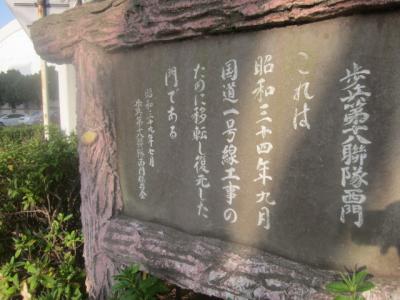 歩兵第十八聯隊西門
これは
昭和三十四年九月
国道一号線工事の
ために移転し復元した
門である
昭和三十九年七月
歩兵第十八聯隊西門保存会